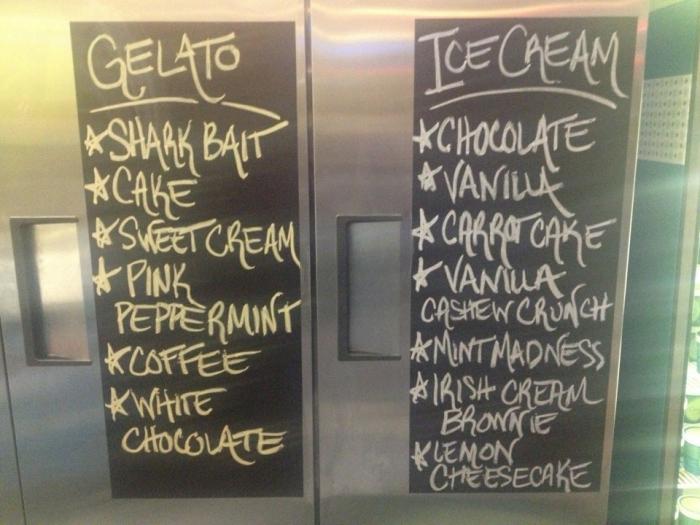 GELATO
☆SHARK BAIT
☆CAKE
☆SWEET CREAM
☆PINK
PEPPERMINT
☆COFFEE
☆WHITE
CHOCOLATE
ICE CREAM
☆CHOCOLATE
☆VANILLA
☆CARROT CAKE
☆VANILLA
CASHEW CRUNCH
☆MINT MADNESS
☆IRISH CREAM
BROWNIE
☆LEMON
CHEESECAKE